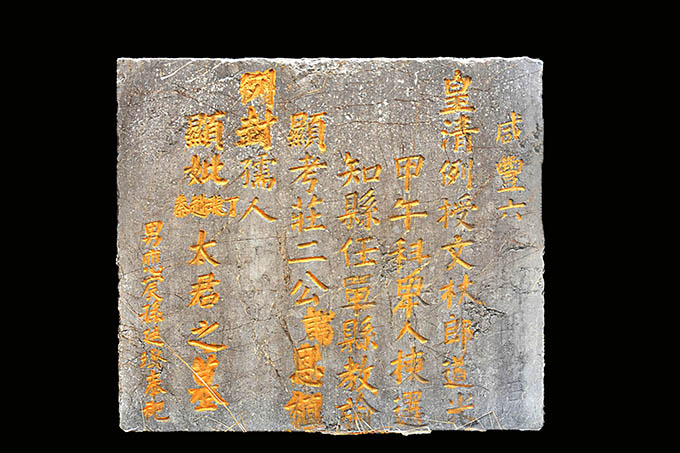 咸豐六
皇清例授文林郎道光
甲午科舉人揀選
知縣任單縣教諭
顯考莊二公諱恩植
例封孺人
顯妣 太君之墓
男 孫延 奉祀